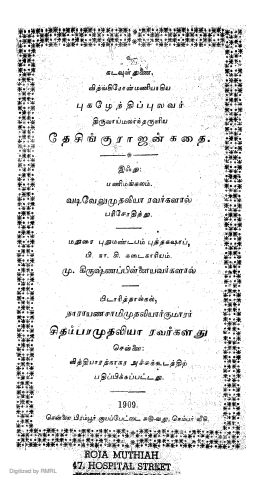 கடவுள் துணை.
வித்வசிரோன்மணியாகிய
புகழேந்திப்புலவர்
திருவாய்மலர்ந்தருளிய
தேசிங்குராஜன்கதை.
இஃது:
பணிமங்கலம்.
வடிவேலுமுதலியா ரவர்களால்
பரிசோதித்து.
மதுரை புதுமண்டபம் புத்தகஷாப்,
பி. கா. கி. கடைகாரியம்.
மு. கிருஷ்ணப்பிள்ளையவர்களால்
பிடாரித்தாங்கல்,
நாராயணசாமிமுதலியார்குமாரர்
சிதம்பரமுதலியா ரவர்களது
சென்னை:
வித்தியாரத்நாகர அச்சுக்கூடத்திற்
பதிப்பிக்கப்பட்டது.
1909.
சென்னை பிரம்பூர்
ROJA MUTHIAH
47, HOSPITAL STREET
Digitized by RMRL